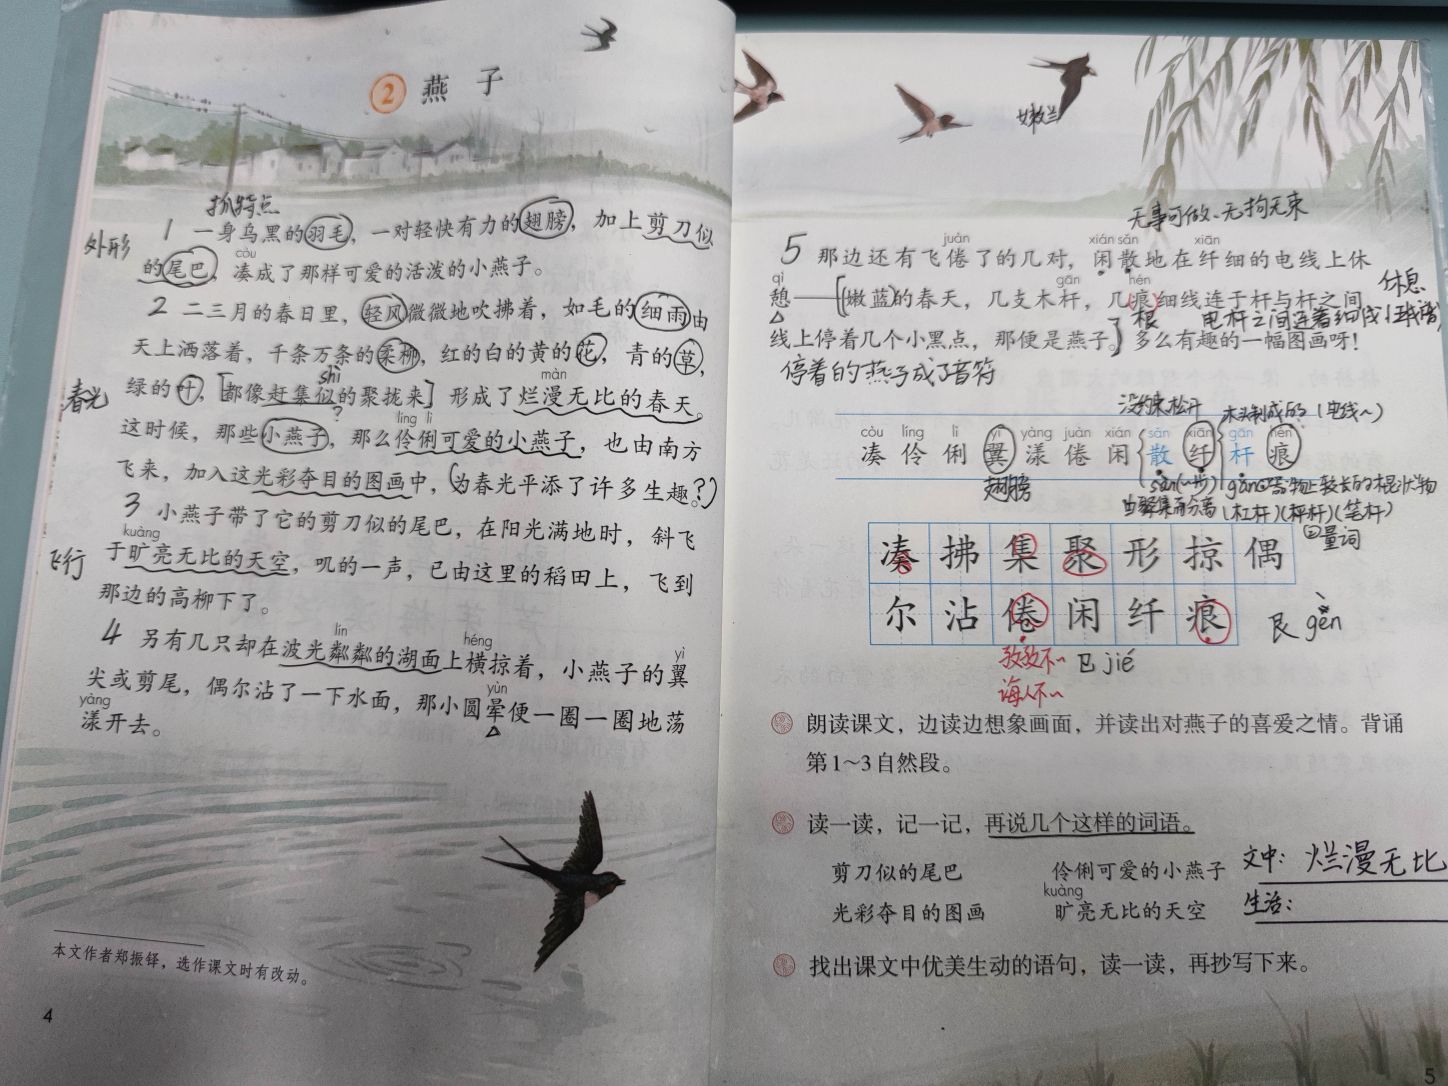 2 燕子
抓特点
外形
1 一身乌黑的羽毛，一对轻快有力的翅膀，加上剪刀似
còu
的尾巴，凑成了那样可爱的活泼的小燕子。
2 二三月的春日里，轻风微微地吹拂着，如毛的细雨由
天上洒落着，千条万条的柔柳，红的白的黄的花，青的草，
shì màn
春光
绿的叶，[都像赶集似的聚拢来]形成了烂漫无比的春天。
? líng lì
这时候，那些小燕子，那么伶俐可爱的小燕子，也由南方
飞来，加入这光彩夺目的图画中，(为春光平添了许多生趣。?)
3 小燕子带了它的剪刀似的尾巴，在阳光满地时，斜飞
kuàng
飞行
于旷亮无比的天空，叽的一声，已由这里的稻田上，飞到
那边的高柳下了。
lín héng yì
4 另有几只却在波光粼粼的湖面上横掠着，小燕子的翼
yùn
尖或剪尾，偶尔沾了一下水面，那小圆晕便一圈一圈地荡
yàng
漾开去。
本文作者郑振铎，选作课文时有改动。
4
嫩兰
无事可做、无拘无束
juàn xián sǎn xiān
5 那边还有飞倦了的几对，闲散地在纤细的电线上休
qì gān hén
憩——[(嫩蓝)的春天，几支木杆，几痕细线连于杆与杆之间，
休息
根 电杆之间连着细线
线上停着几个小黑点，那便是燕子。]多么有趣的一幅图画呀！
停着的燕子成了音符
没约束松开 木头制成的(电线~)
còu líng lì yì yàng juàn xián sǎn xiān gān hén
凑 伶 俐 翼 漾 倦 闲 散 纤 杆 痕
翅膀
sàn(~步)
由聚集而分离
gǎn①器物上较长的棍状物
(杠杆)(秤杆)(笔杆)
②量词
凑 拂 集 聚 形 掠 偶
尔 沾 倦 闲 纤 痕
艮 gèn
孜孜不~ 㔾 jié
诲人不~
朗读课文，边读边想象画面，并读出对燕子的喜爱之情。背诵
第1～3自然段。
读一读，记一记，再说几个这样的词语。
剪刀似的尾巴 伶俐可爱的小燕子
文中：烂漫无比
kuàng
光彩夺目的图画 旷亮无比的天空
生活：
找出课文中优美生动的语句，读一读，再抄写下来。
5